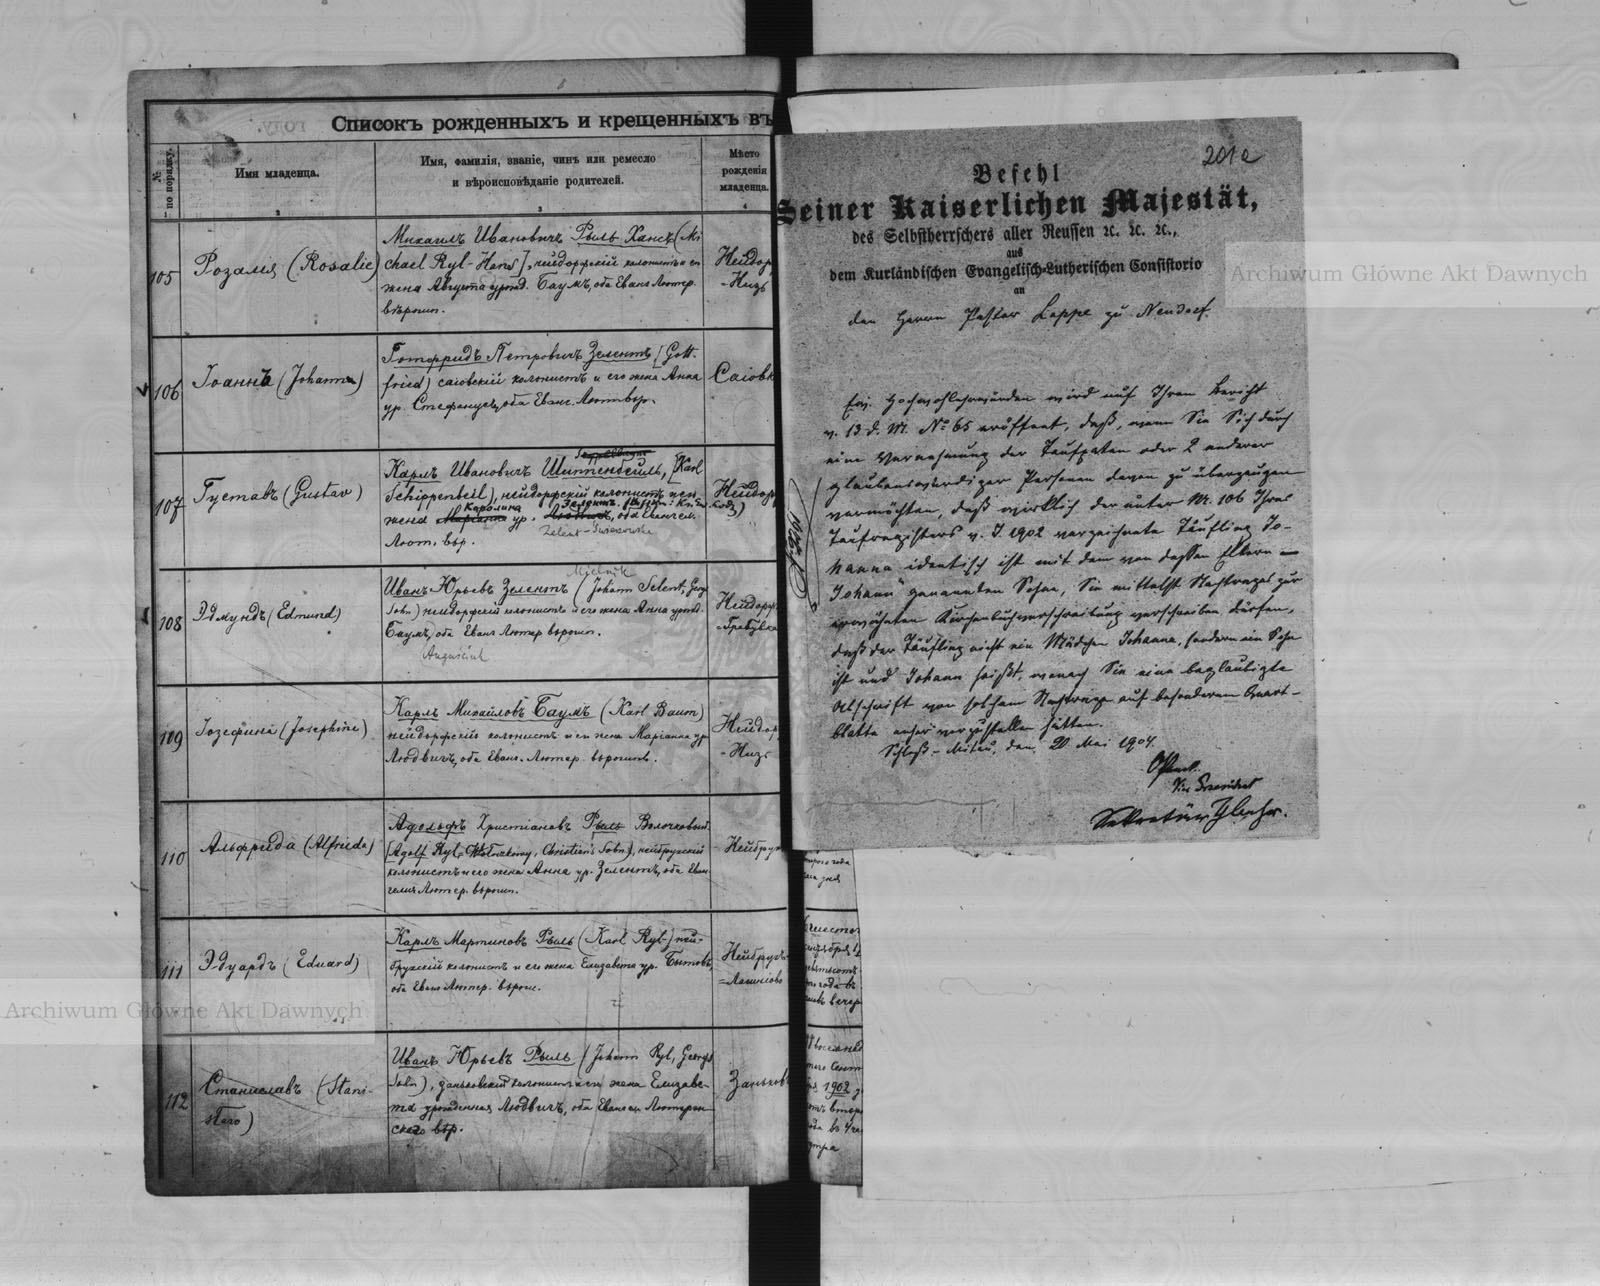 Списокъ рожденныхъ и крещенныхъ въ
году.
№ по порядку.
Имя младенца.
Имя, фамилія, званіе, чинъ или ремесло
и вѣроисповѣданіе родителей.
Мѣсто
рожденія
младенца.
2
3
4
105
Розалія (Rosalie)
Михаилъ Ивановичъ Рыль Хансъ (Mi
chael Ryl-Hans], нейдорфскій колонистъ и его
жена Августа урожд. Баумъ, оба Еванг. Лютер.
вѣроисп.
Нейдор
-Низъ
106
Іоаннъ (Johanna)
Готфридъ Петровичъ Зелентъ [Gott-
fried) саіовскій колонистъ и его жена Анна
ур. Стефанусъ, оба Еванг. Лют. вѣр.
Саіовк
107
Густавъ (Gustav)
Карлъ Ивановичъ Шиппенбейль, [Karl
Schippenbeil), нейдорфскій колонистъ и его
Каролина Зелентъ
жена Маріанна ур. оба Евангел.
Zelent-
Лют. вѣр.
Нейдор
108
Эдмундъ (Edmund)
Mielnik
Иванъ Юрьевъ Зелентъ (Johann Selent, Georg
Sohn) нейдорфскій колонистъ и его жена Анна урожд.
Баумъ, оба Еванг. Лютер. вѣроисп.
Augusciuk
Нейдорф
-Грабувка
109
Іозефина (Josephine)
Карлъ Михайловъ Баумъ (Karl Baum)
нейдорфскій колонистъ и его жена Маріанна ур.
Людвигъ, оба Еванг. Лютер. вѣроисп.
Нейдор
-Низъ
110
Альфрида (Alfriede)
Адольфъ Христіановъ Рыль Волочковый
[Adolf Ryl-Wołoczkowy, Christian's Sohn), нейбрускій
колонистъ и его жена Анна ур. Зелентъ, оба Еван
гелич. Лютер. вѣроисп.
Нейбру
111
Эдуардъ (Eduard)
Карлъ Мартиновъ Рыль (Karl Ryl-) ней-
брускій колонистъ и его жена Елизавета ур. Бытовъ,
оба Еванг. Лютер. вѣроис.
Нейбрувъ-
112
Станиславъ (Stani-
sław)
Иванъ Юрьевъ Рыль (Johann Ryl, Georgs
Sohn), заньковскій колонистъ и его жена Елизаве-
та урожденная Людвигъ, оба Евангел. Лютеран-
скаго вѣр.
Заньков
201a
Befehl
Seiner Kaiserlichen Majestät,
des Selbstherrschers aller Reussen ꝛc. ꝛc. ꝛc.,
aus
dem Kurländischen Evangelisch-Lutherischen Consistorio
an
den Herrn Pastor Loppe zu Neudorf.
Ew. Hochwohlehrwürden wird auf Ihren Bericht
v. 13 d. M. № 65 eröffnet, daß, wenn Sie Sich durch
eine Vernehmung der Taufpaten oder 2 anderer
glaubenswürdiger Personen davon zu überzeugen
vermöchten, daß wirklich der unter Nr. 106 Ihres
Taufregisters v. J. 1902 verzeichnete Täufling Jo-
hanna identisch ist mit dem von dessen Eltern
"Johann" genannten Sohne, Sie mittelst Nachtrages zur
erwähnten Kirchenbuchverschreibung verschreiben dürfen,
daß der Täufling nicht ein Mädchen Johanna, sondern ein Sohn
ist und Johann heißt, wonach Sie eine beglaubigte
Abschrift von solchem Nachtrage auf besonderem Quart-
blatte anher vorzustellen hätten.
Schloß-Mitau, den 20 Mai 1904.
Vice Präsident
Sekretär
1902
Archiwum Główne Akt Dawnych
Archiwum Główne Akt Dawnych